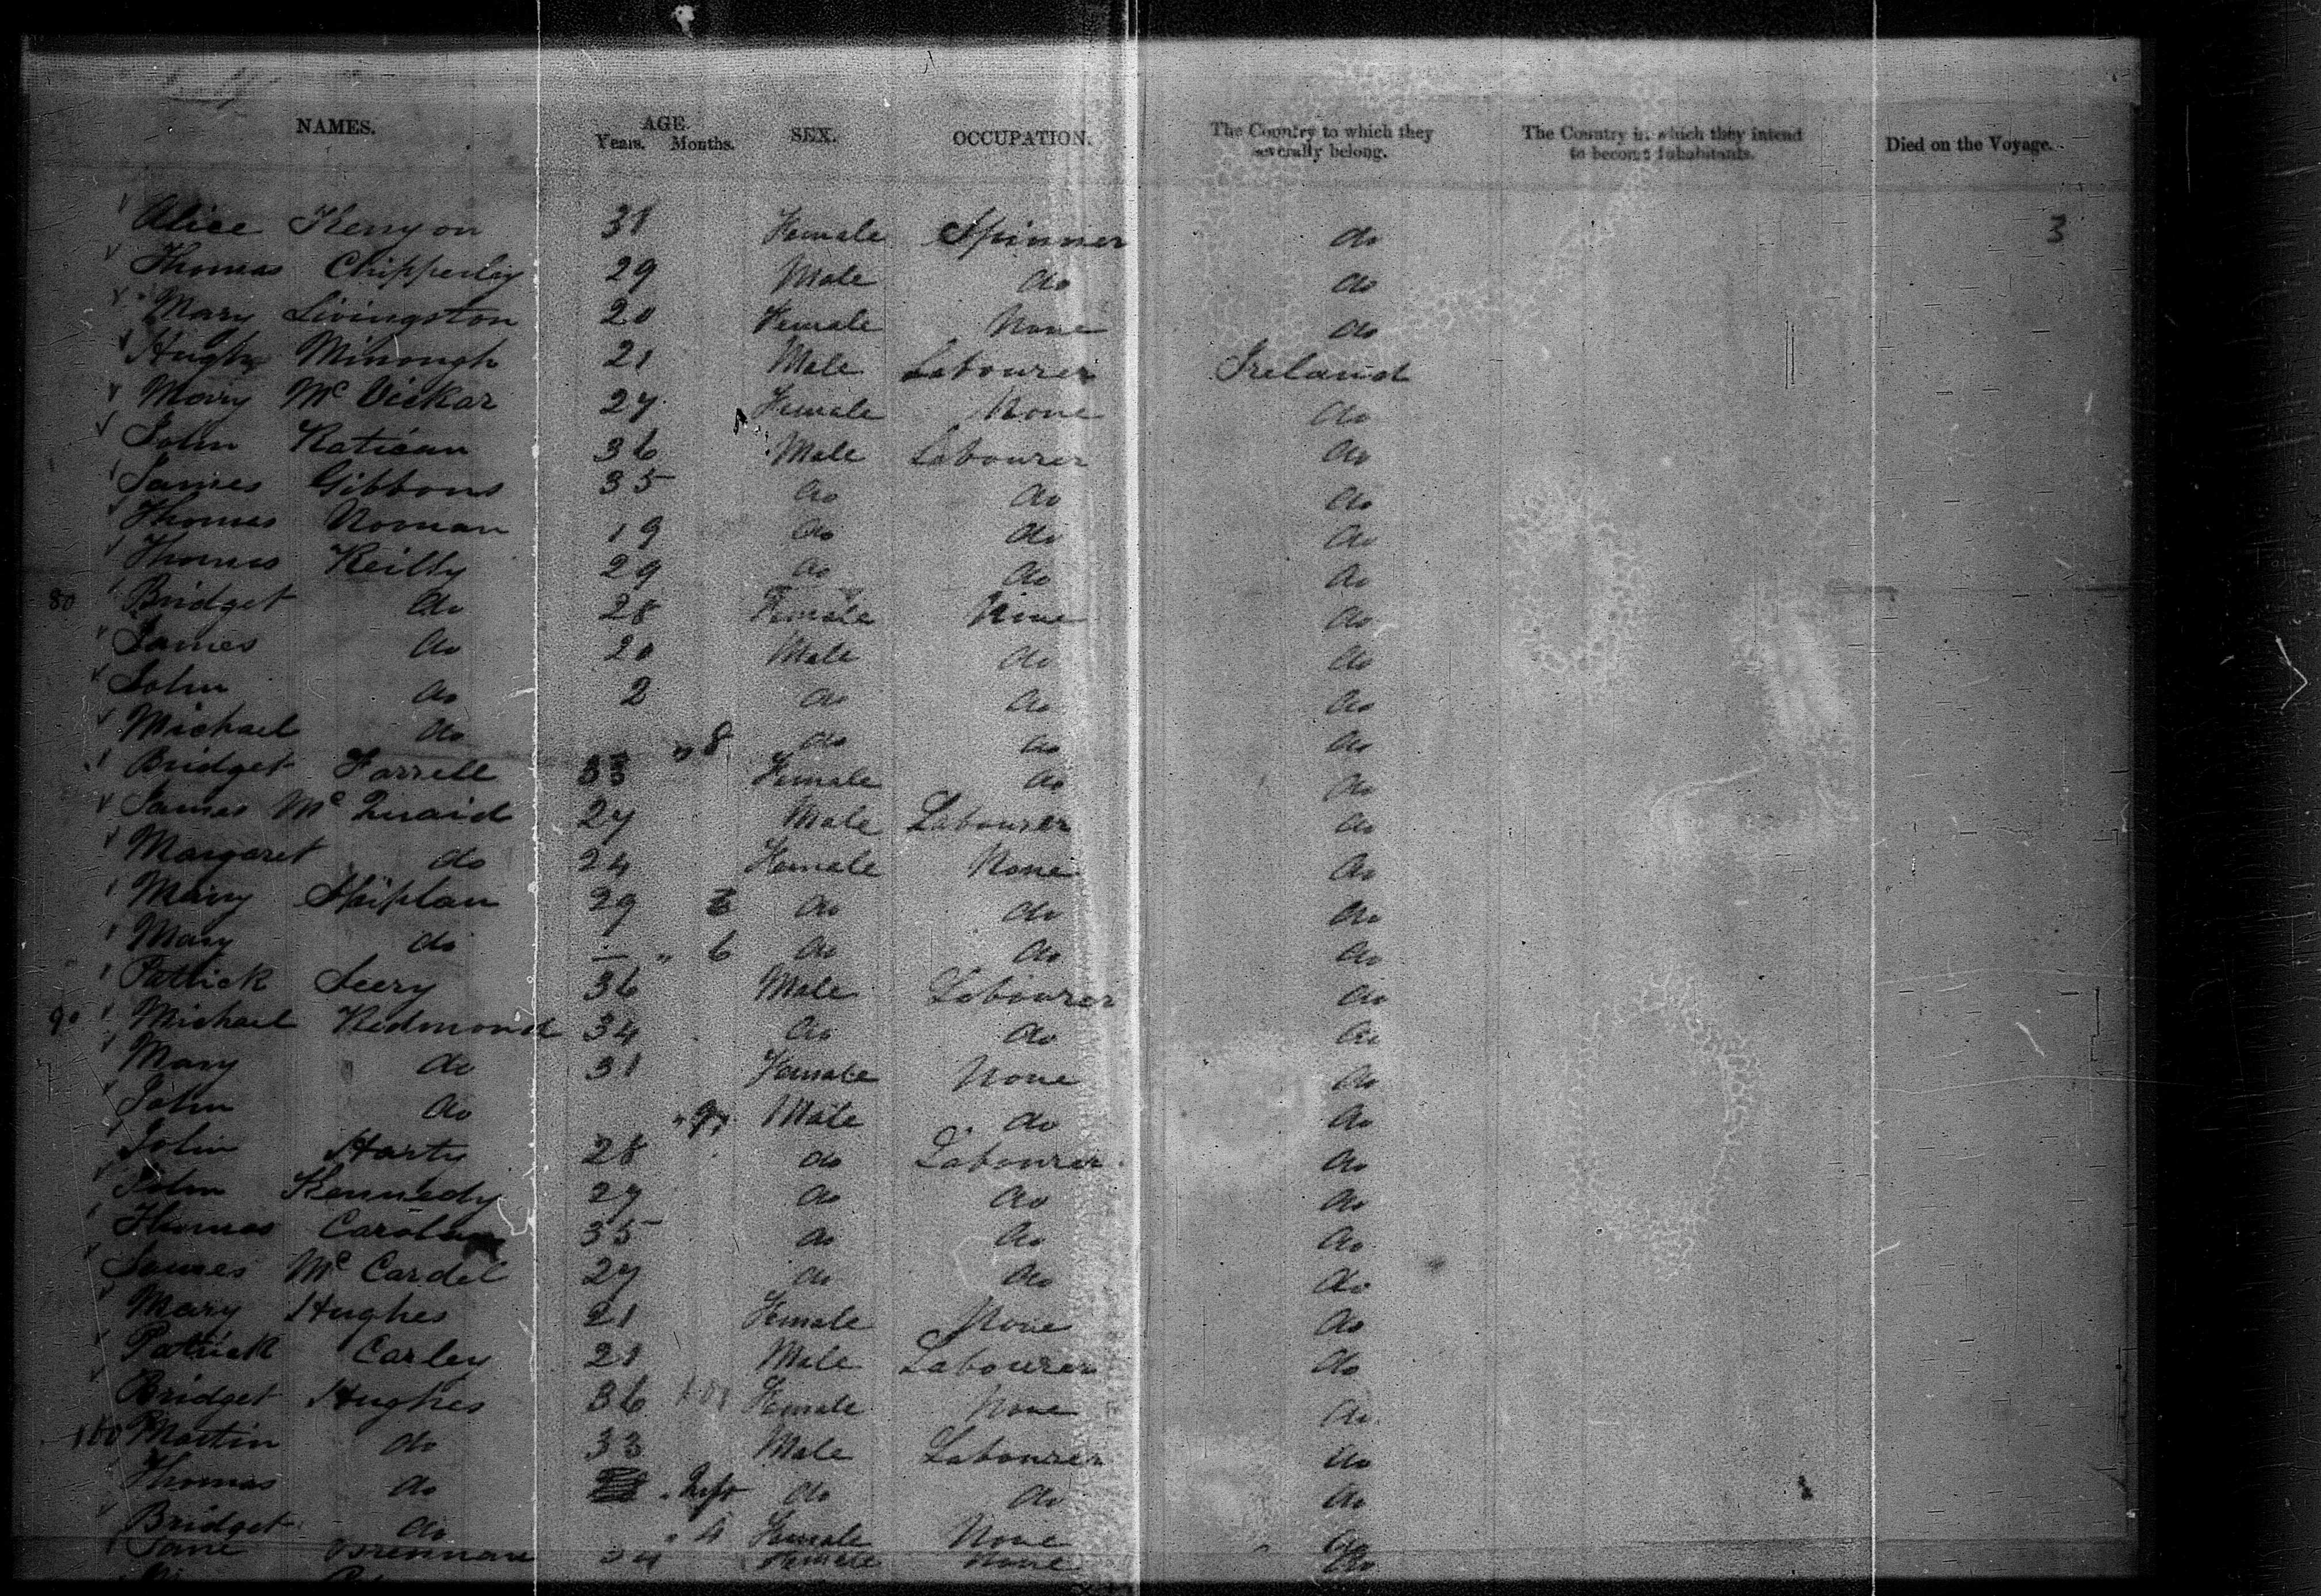 NAMES. AGE. SEX. OCCUPATION. The Country to which they The Country in which they intend Died on the Voyage.
Years. Months. severally belong. to become Inhabitants.
Alice Kenyon 31 Female Spinner do 3
Thomas Chipperley 29 Male do do
Mary Livingston 20 Female None do
Hugh Minough 21 Male Labourer Ireland
Mary Mc Vickar 27 Female None do
John Ratican 36 Male Labourer do
James Gibbons 35 do do do
Thomas Noman 19 do do do
Thomas Reilly 29 do do do
80 Bridget do 28 Female None do
James do 20 Male do do
John do 2 do do do
Michael do " 8 do do do
Bridget Farrell 33 Female do do
James Mc Quaid 27 Male Labourer do
Margaret do 24 Female None do
Mary 29 do do do
Mary do — " 6 do do do
Patrick Seery 36 Male Labourer do
90 Michael Redmond 34 do do do
Mary do 31 Female None do
John do " 9 Male do do
John Harty 28 do Labourer do
John Kennedy 27 do do do
Thomas Carolan 35 do do do
James Mc Cardel 27 do do do
Mary Hughes 21 Female None do
Patrick Carley 21 Male Labourer do
Bridget Hughes 36 Female None do
100 Martin do 33 Male Labourer do
Thomas do do do do
Bridget do " 4 Female None do
Jane Brennan 24 Female None do